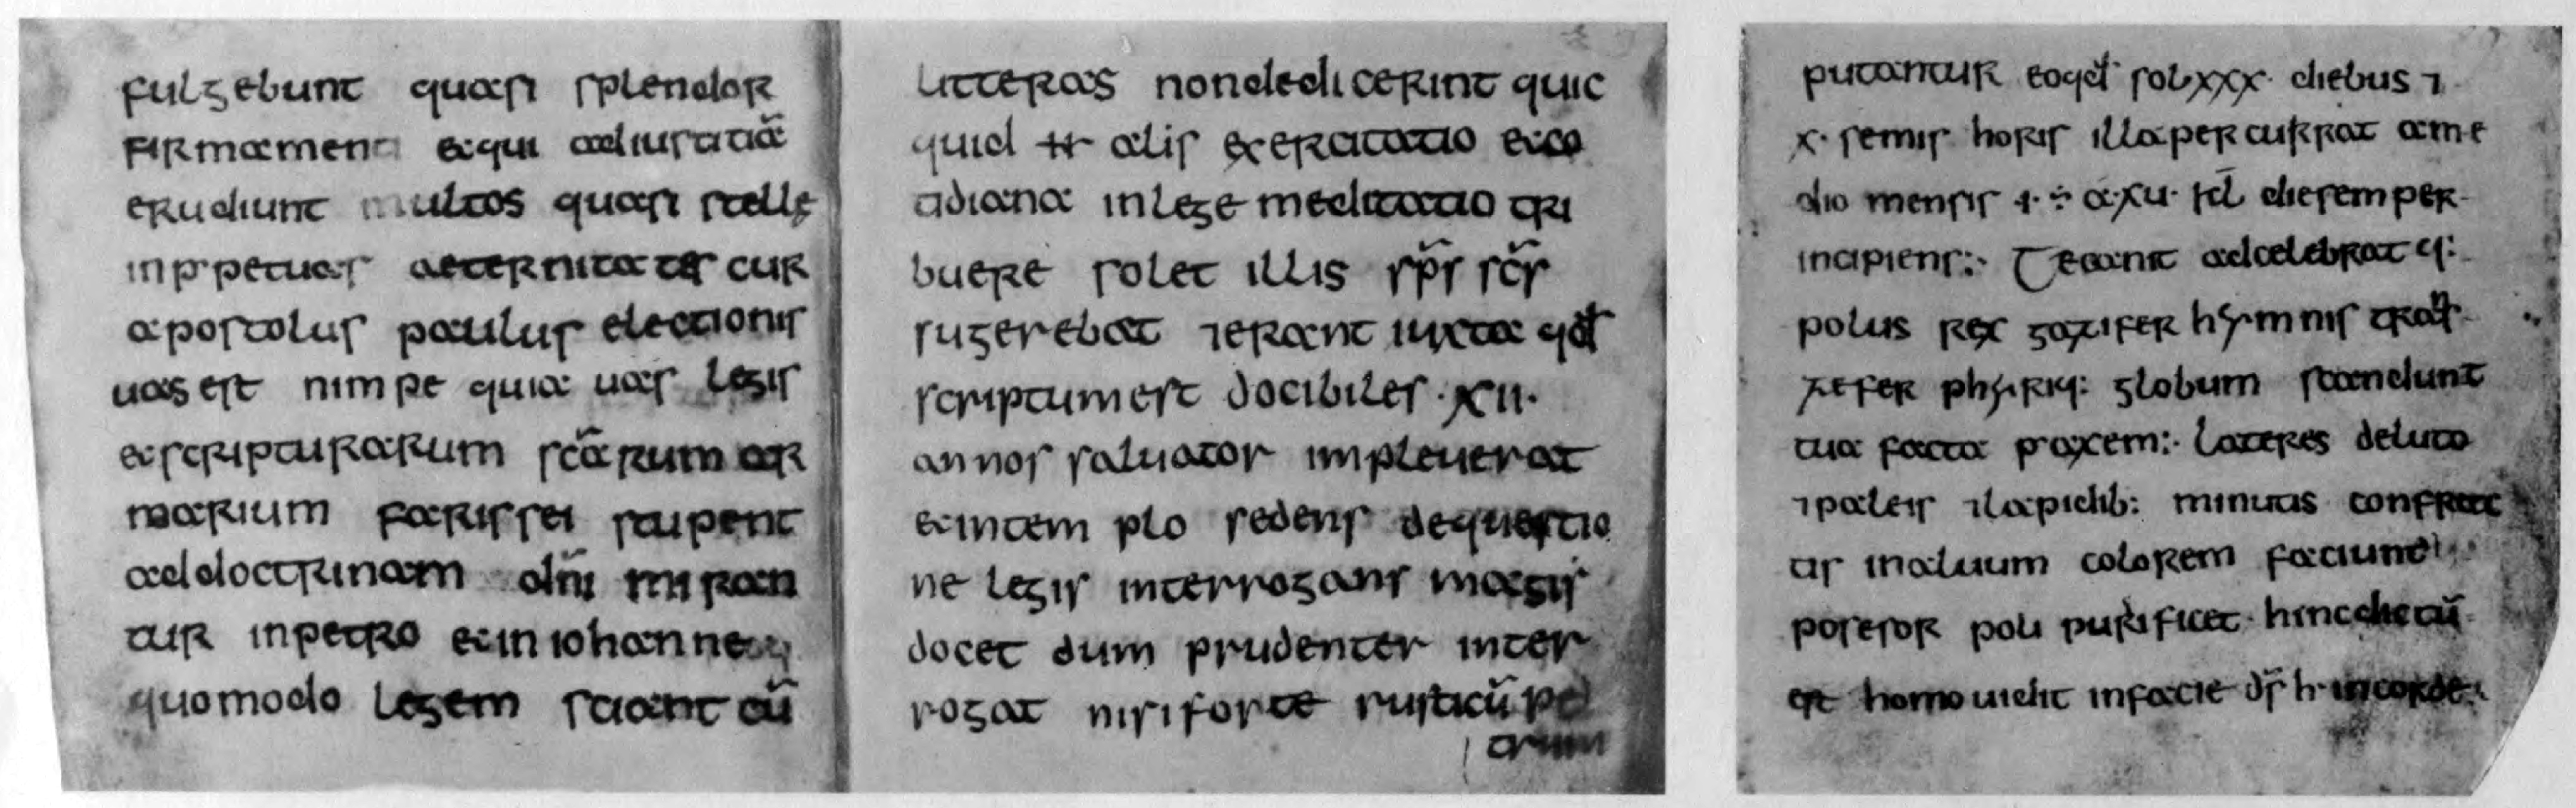 fulgebunt quasi splendor
firmament& qui ad iustitiā
erudiunt multos quasi stellę
in p̱petuas aeternitates cur
apostolus paulus electionis
uas est nimpe quia uas legis
&scripturarum scārum ar
marium farissei stupent
ad doctrinam dn̄i miran
tur in petro & in iohanne
quomodo legem sciant cū
litteras non dedicerint quic
quid aliis exercitatio & co
tidiana in lege meditatio tri
buere solet illis sp̄s sc̄s
sugerebat ⁊ erant iuxta qđ
scriptum est docibiles · xii ·
annos saluator impleuerat
& in templo sedens de questio
ne legis interrogans magis
docet dum prudenter inter
rogat nisi forte rusticū pe
trum
putantur eo qđ sol xxx · diebus ⁊
x · semis horis illa percurrat a me
dio mensis ÷ a · xu · kł die semper
incipiens :· Te cant& ad celebrat q:
polus rex gazifer hymnis
zefer phyrriq: globum scandunt
tua facta p axem :· Lateres de luto
⁊ paleis ⁊ lapidib: minutis confrac
tis in aluum colorem faciunt
posessor poli purificet · hinc dictū
est homo uidit in facie dſ h· in corde